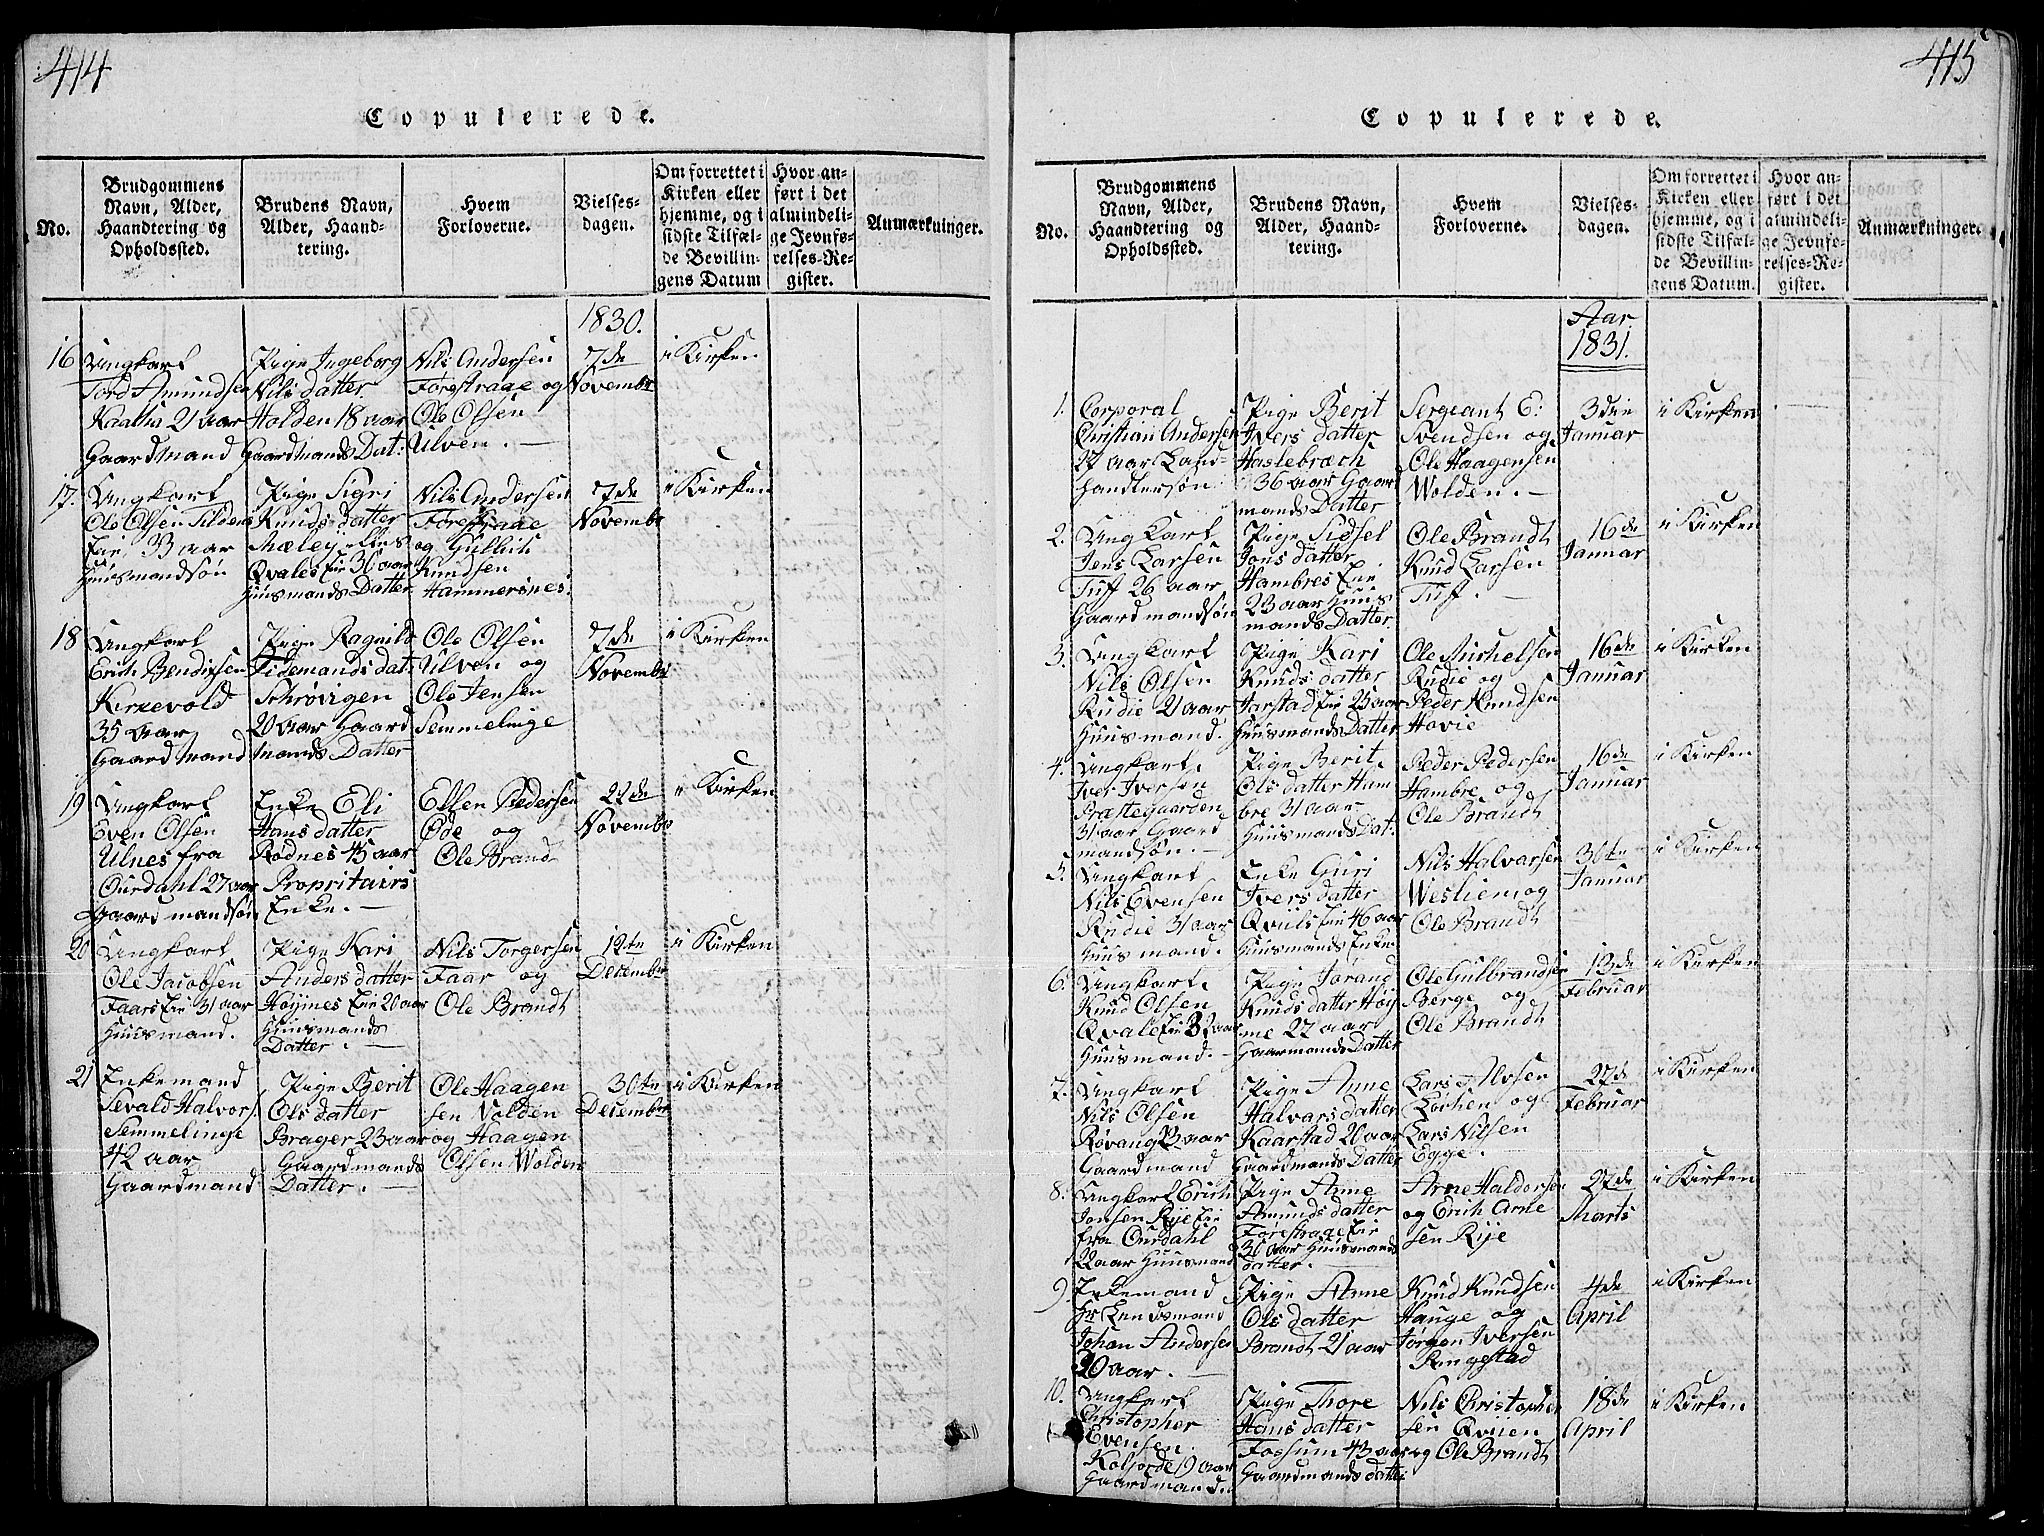 414
Copulerede.
No.
Brudgommens
Navn, Alder,
Haandtering og
Opholdssted.
Brudens Navn,
Alder, Haand-
tering.
Hvem
Forloverne.
Vielses-
dagen.
Om forrettet i
Kirken eller
hjemme, og i
sidste Tilfæl-
de Bevillin-
gens Datum
Hvor an-
ført i det
almindeli-
ge Jevnfø-
relses-Re-
gister.
Anmærkninger.
1830.
16
Ungkarl
Tord Amundsen
21 aar
Gaardmand
Pige Ingeborg
Nils datter
Holden 18 aar
Gaardmands Dat:
Nils Andersen
Førestraae og
Ole Olsen
Ulven.
7de
November
i Kirken
17.
Ungkarl
Ole Olsen Tildens
Eie, 33 aar
Huusmandsøn
Pige Sigri
Knuds datter
Qvales Eie 36 aar
Huusmands Datter
Nils Andersen
Førestraae
og Gullik
Knudsen
Hammersnes.
7de
November
i Kirken
18
Ungkarl
Erich Bendixsen
Kirkevold
35 Aar
Gaardmand
Pige Ragnild
Tidemands dat:
Schrøvigen
20 Aar Gaard
mands Datter
Ole Olsen
Ulven og
Ole Jensen
Semmelinge
7de
November
i Kirken
19
Ungkarl
Even Olsen
Ulnes fra
Ourdahl 27 aar
Gaardmandsøn
Enke Eli
Hans datter
Rødnes 45 aar
Propritairs
Enke.
Ellen Pedersen
Øde og
Ole Brand
22de
November
i Kirken
20
Ungkarl
Ole Jacobsen
Faars Eie 31 aar
Huusmand.
Pige Kari
Anders datter
Høynes Eie 20 aar
Huusmands
Datter.
Nils Torgersen
Faar og
Ole Brandt
12te
December
i Kirken
21
Enkemand
Sevald Halvors:
Semmelinge
42 aar
Gaardmand
Pige Berit
Ols datter
Brager 23 aar
Gaardmands
Datter.
Ole Haagen
sen Volden
og Haagen
Olsen Wolden
30te
December
i Kirken
415
Copulerede.
No.
Brudgommens
Navn, Alder,
Haandtering og
Opholdssted.
Brudens Navn,
Alder, Haand-
tering.
Hvem
Forloverne.
Vielses-
dagen.
Om forrettet i
Kirken eller
hjemme, og i
sidste Tilfæl-
de Bevillin-
gens Datum.
Hvor an-
ført i det
almindeli-
ge Jevnfø-
relses-Re-
gister.
Anmærkninger.
Aar
1831.
1.
Corporal
Christian Andersen
27 aar Land-
handlersøn
Pige Berit
Ivers datter
Haslebræch
36 aar Gaar
mands Datter
Sergeant E:
Svendsen og
Ole Haagensen
Wolden.
3die
Januar
i Kirken
2.
Ungkarl
Jens Larsen
Tuff 26 aar
Gaardmandsøn
Pige Sidsel
Jons datter
Hambres Eie
23 aar Huus
mands Datter.
Ole Brandt
Knud Larsen
Tuff.
16de
Januar
i Kirken
3.
Ungkarl
Nils Olsen
Rudie 21 aar
Huusmand.
Pige Kari
Knuds datter
Harstad Eie 23 aar
Huusmands Datter
Ole Michelsen
Rudie og
Peder Knudsen
Hovie
16de
Januar
i Kirken
4.
Ungkarl.
Iver Iversen
Præstegaarden
31 aar Gaard
mandsøn.
Pige Berit.
Ols datter Ham
bre 31 aar
Huusmands Dat:
Peder Pedersen
Hambre og
Ole Brandt
16de
Januar
i Kirken
5.
Ungkarl
Nils Evensen
Rudie 31 aar
Huusmand.
Enke Guri
Ivers datter
Eie 46 aar
Huusmands Enke
Nils Halvarsen
Westlien og
Ole Brandt
30te
Januar
i Kirken
6.
Ungkarl.
Knud Olsen
Qvale Eie 32 aar
Huusmand.
Pige Jørand
Knuds datter Høy
me 22 aar
Gaarmands Datter
Ole Gulbrandsen
Berge og
Ole Brandt
13de
Februar
i Kirken
7.
Ungkarl
Nils Olsen
Røvang 23 aar
Gaardmand
Pige Anne
Halvars datter
Kaarstad 20 aar
Gaardmands Datter
Lars Alvsen
Lørhen og
Lars Nilsen
Egge.
27de
Februar
i Kirken
8.
Ungkarl Erich
Jonsen Rye Eie
fra Ourdahl
22 aar Huusmand
Pige Anne
Amunds datter
Førestraae Eie
30 aar Huusmands
datter.
Arne Haldorsen
og Erich Arne
sen Rye
27de
Marts
i Kirken
9.
Enkemand
Hr Lensmand
Johan Andersen
30 aar.
Pige Anne
Ols datter
Brandt 21 aar
Knud Knudsen
Hauge og
Jørgen Iversen
Ringestad
4de
April
i Kirken
10.
Ungkarl
Christopher
Evensen
19 aar
Gaardmand.
Pige Thore
Hans datter
Fossum 43 aar
Gaardmands datter
Nils Christopher
sen Qviien
og Ole Brandt
18de
April
i Kirken